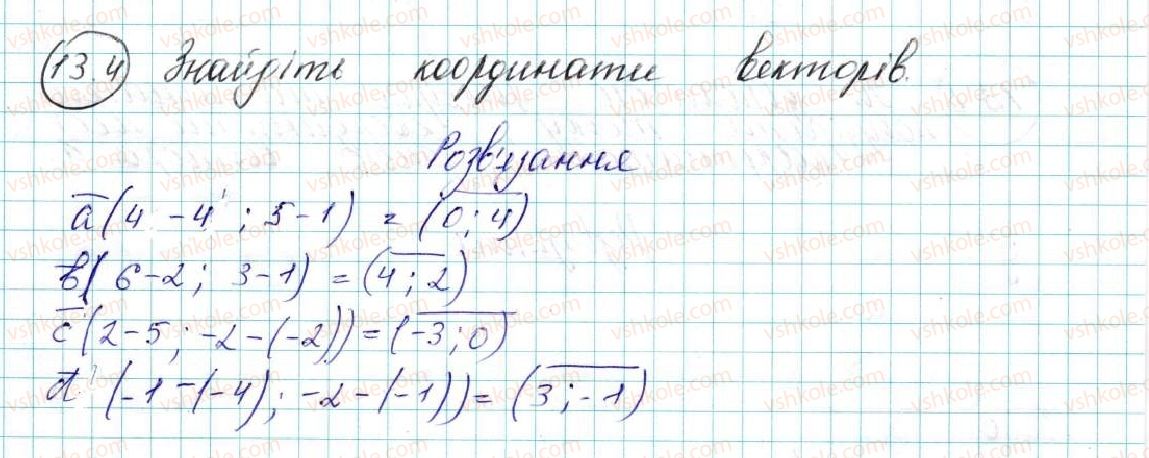 13.4 Знайдіть координати векторів.
Розв'язання
a̅ (4 - 4 ; 5 - 1) = (0 ; 4)
b̅ (6 - 2 ; 3 - 1) = (4 ; 2)
c̅ (2 - 5 ; -2 - (-2)) = (-3 ; 0)
d̅ (-1 - (-4) ; -2 - (-1)) = (3 ; -1)
vshkole.com